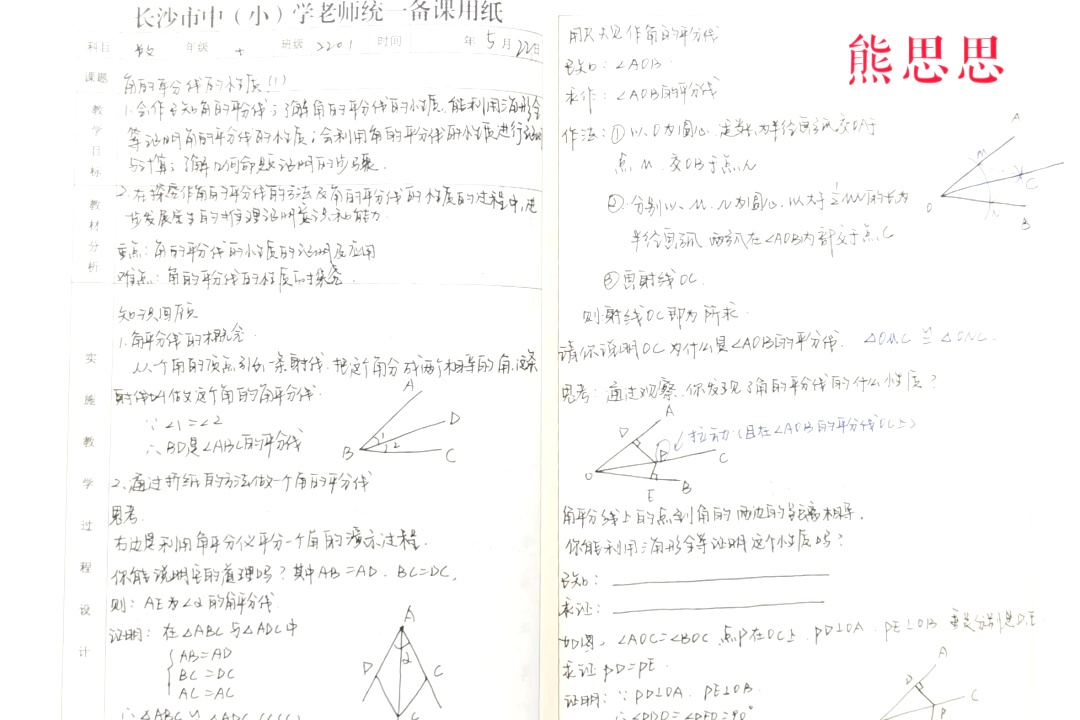 长沙市中(小)学老师统一备课用纸
科目 数 年级 七 班级 2201 时间 年 5 月 22 日
课题 角的平分线的性质(1)
教学目标
1.合作已知角的平分线;了解角的平分线的性质,能利用三角形全
等证明角的平分线的性质;会利用角的平分线的性质进行证明
与计算;了解几何命题证明的步骤.
教材分析
2.在探究作角的平分线的方法及角的平分线的性质的过程中,进
步发展学生的推理证明意识和能力.
重点:角的平分线的性质的证明及应用
难点:角的平分线的性质的探究.
实施教学过程设计
知识回顾
1.角平分线的概念.
从一个角的顶点引出一条射线,把这个角分成两个相等的角,这条
射线叫做这个角的角平分线.
∵ ∠1=∠2
∴ BD是∠ABC的平分线
A
D
1
2
B
C
2.通过折纸的方法做一个角的平分线
思考.
右边是利用角平分仪平分一个角的演示过程.
你能说明它的道理吗?其中AB=AD.BC=DC,
则:AE为∠α的角平分线
证明:在△ABC与△ADC中
AB=AD
BC=DC
AC=AC
A
2
D
C
∴△ABC≌△ADC
用尺规作角的平分线
已知:∠AOB.
求作:∠AOB的平分线
作法:①以O为圆心,定长为半径画弧交OA于
点M.交OB于点N
②分别以M.N为圆心.以大于½MN的长为
半径画弧 两弧在∠AOB内部交于点C
③画射线OC.
则射线OC即为所求.
A
M
C
O
N
B
请你说明OC为什么是∠AOB的平分线. △OMC≌△ONC.
思考:通过观察.你发现了角的平分线的什么性质?
A
D
P
拉动(且在∠AOB的平分线OC上)
C
O
E
B
角平分线上的点到角的两边的距离相等.
你能利用三角形全等证明这个性质吗?
已知:
求证:
如图,∠AOC=∠BOC.点P在OC上.PD⊥OA.PE⊥OB 垂足分别是D.E
求证PD=PE.
证明:∵PD⊥OA.PE⊥OB.
∴∠PDO=∠PEO=90°
A
D
C
P
熊思思